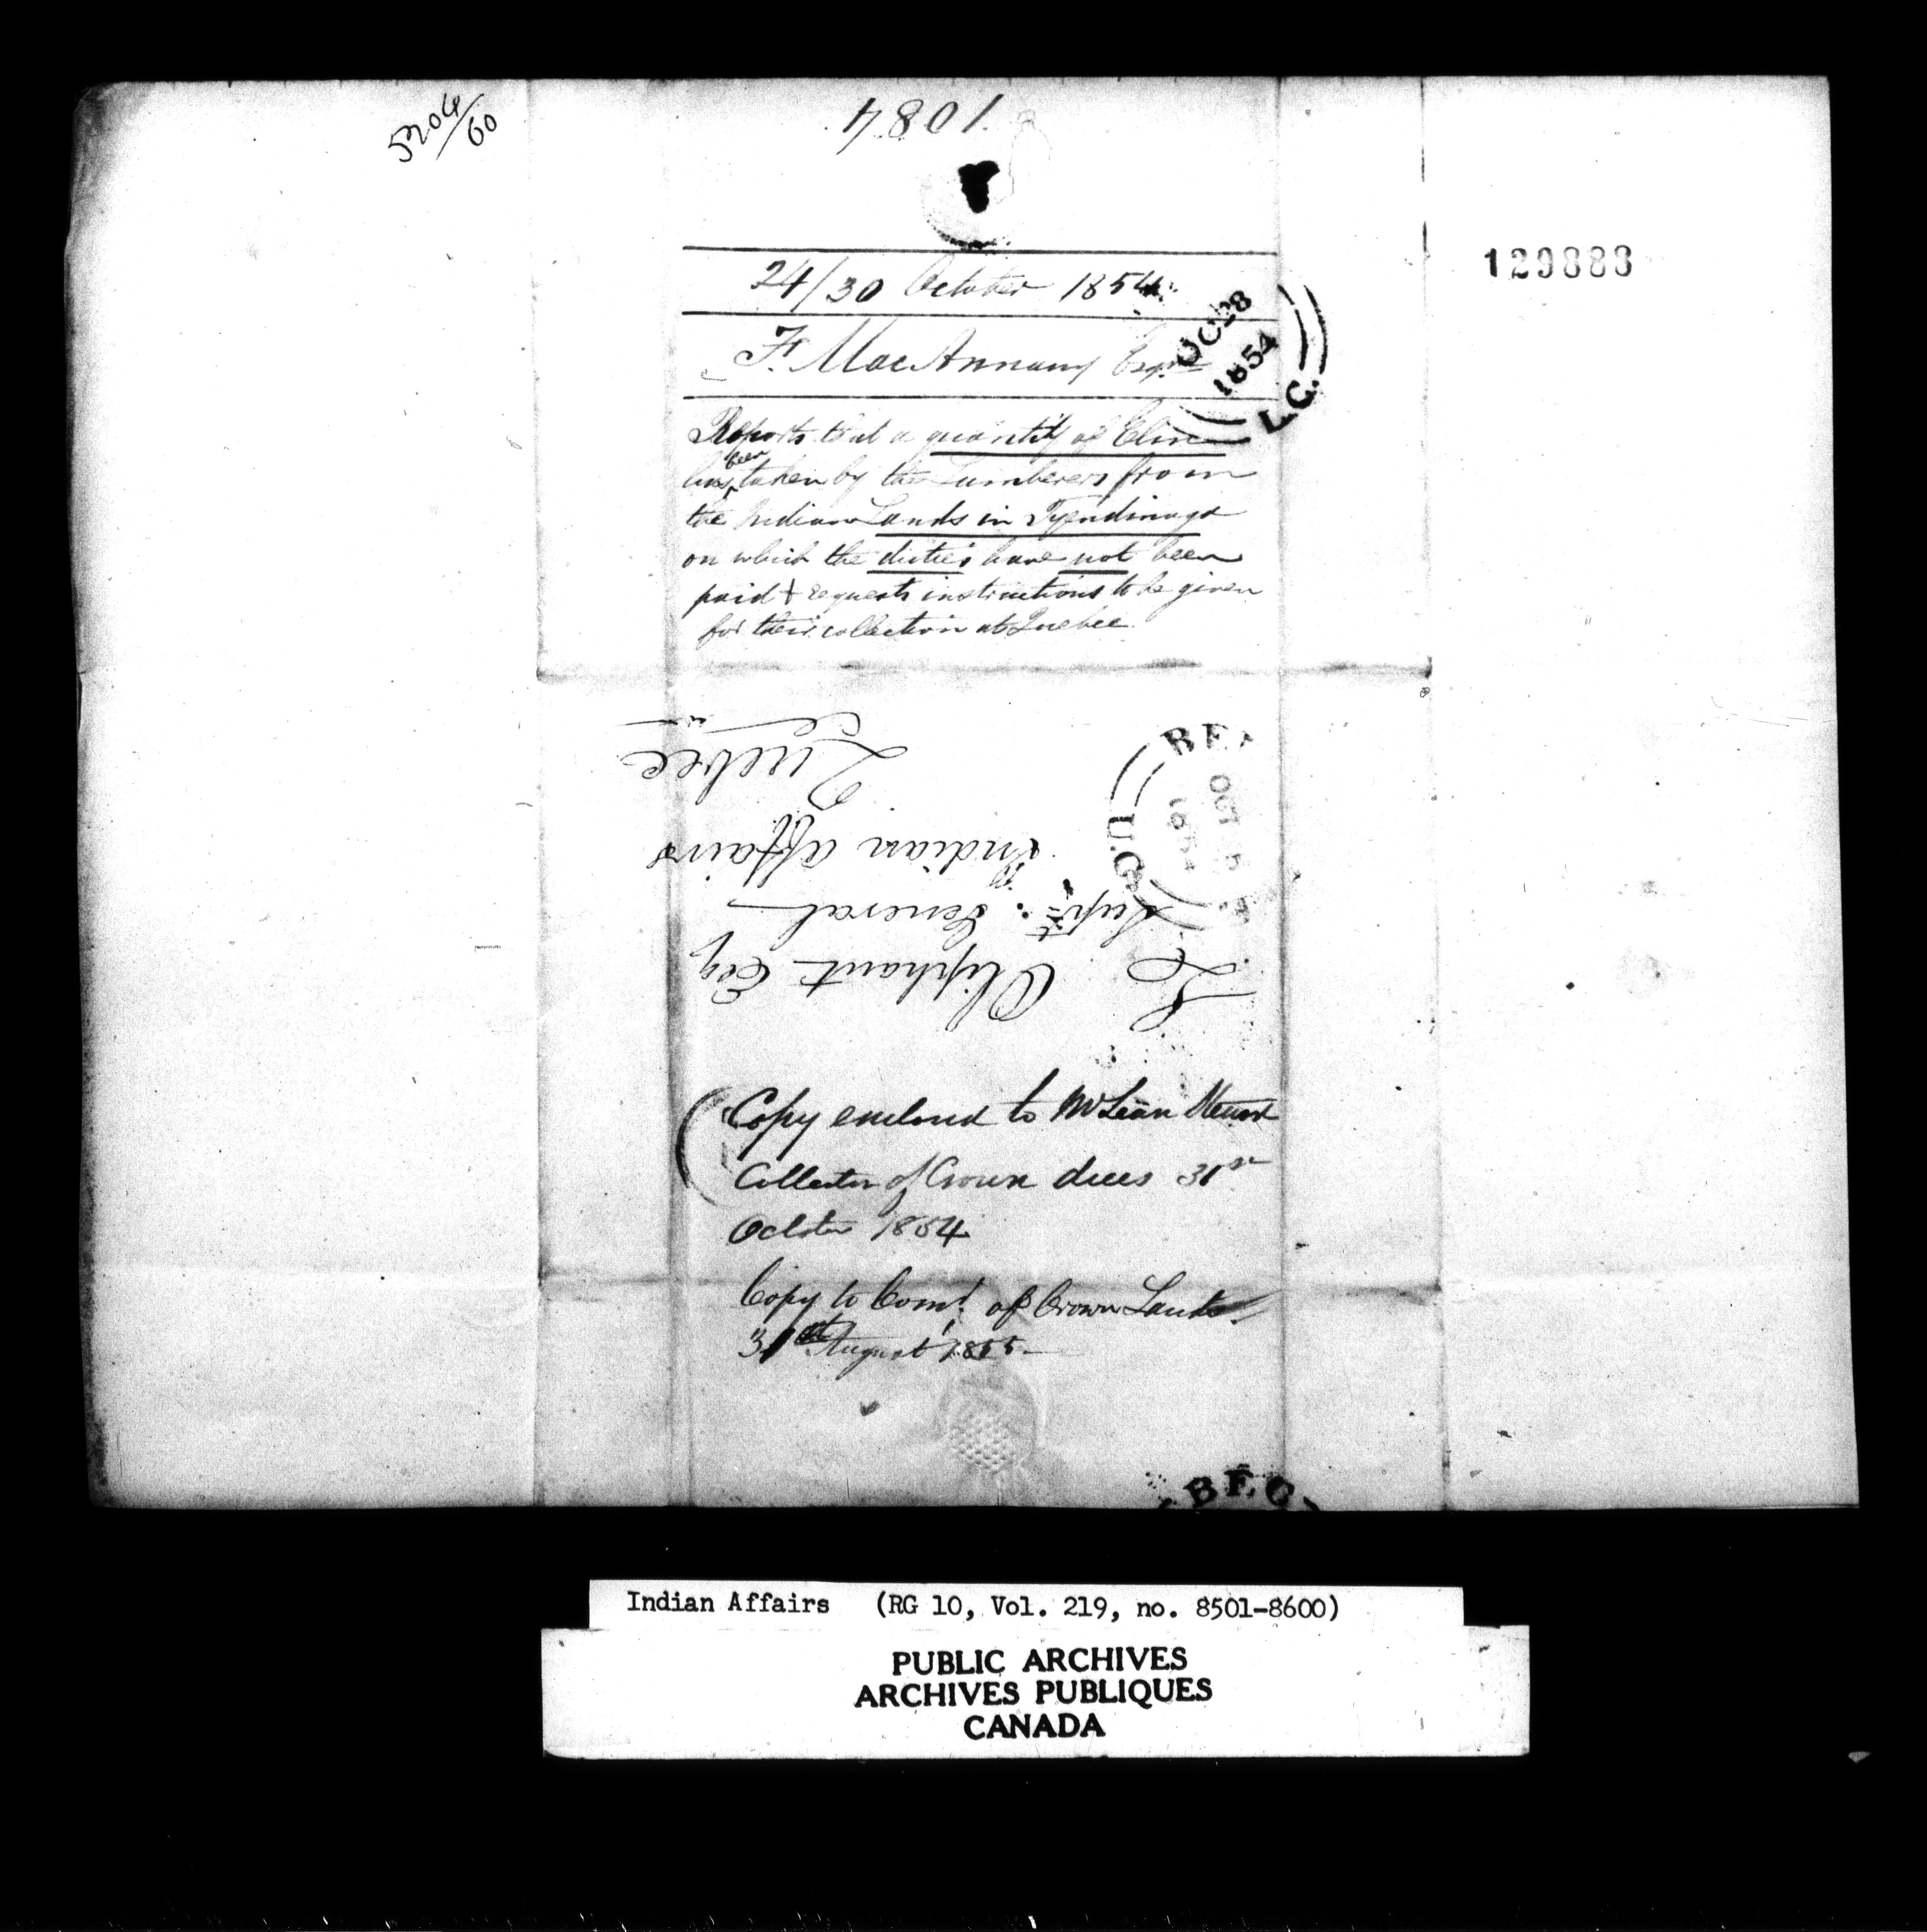 5204/60
1084
129888
24/30 October 1854
F. MacAnnany Esqre
OC 28
1854
L.C.
Reports that a quantity of Elm
has been taken by the Lumberers from
the Indian Lands in Tyendinaga
on which the duties have not been
paid & requests instructions to be given
for their collection at Quebec.
L Oliphant Esq
Supt. General
Indian Affairs
Quebec
BE
OCT
1854
U.C.
Copy enclosed to McLean Stewart
Collector of Crown dues 31st
October 1854
Copy to Comr. of Crown Lands
31st August 1855
BEC
Indian Affairs (RG 10, Vol. 219, no. 8501-8600)
PUBLIC ARCHIVES
ARCHIVES PUBLIQUES
CANADA